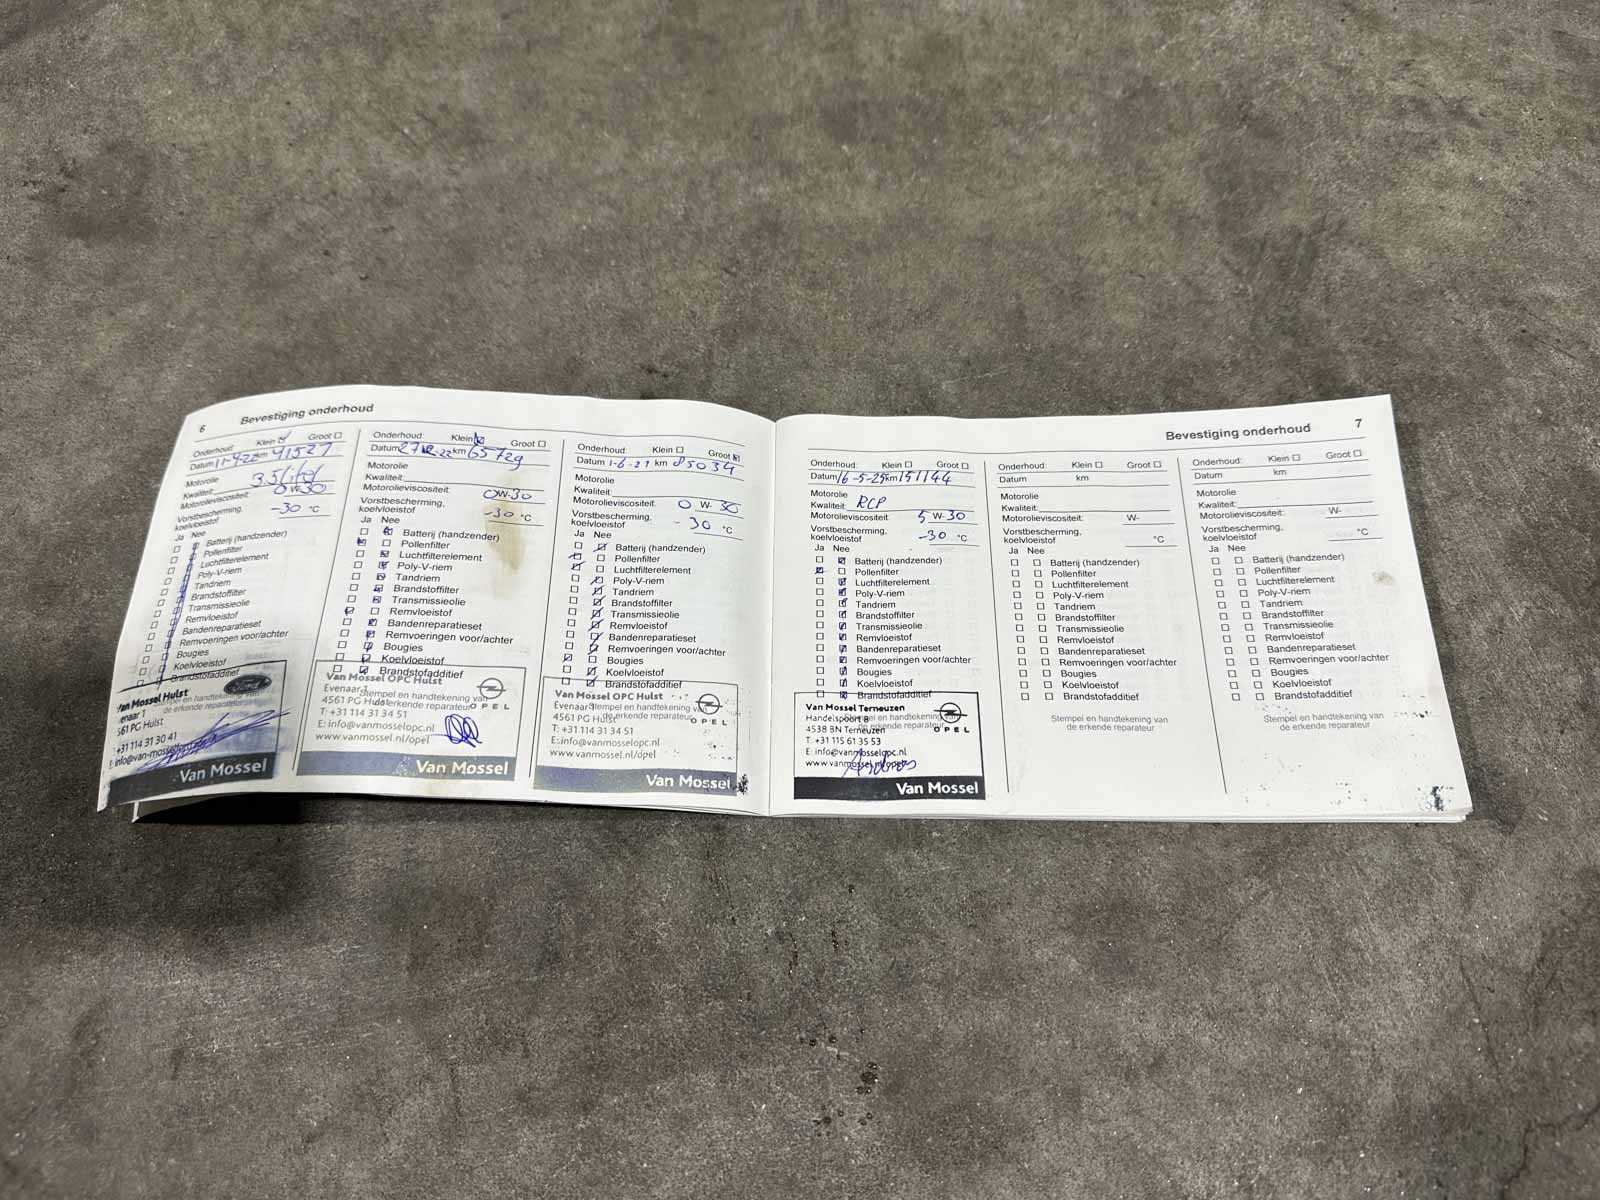 6
Bevestiging onderhoud
Onderhoud: Klein Groot
Datum 11-4-22 km 41527
Motorolie
Kwaliteit:
Motorolieviscositeit: 0 W-30
Vorstbescherming,
koelvloeistof -30 °C
Ja Nee
Batterij (handzender)
Pollenfilter
Luchtfilterelement
Poly-V-riem
Tandriem
Brandstoffilter
Transmissieolie
Remvloeistof
Bandenreparatieset
Remvoeringen voor/achter
Bougies
Koelvloeistof
Brandstofadditief
Stempel en handtekening van
de erkende reparateur
Van Mossel Hulst
Evenaar 1
4561 PG Hulst
+31 114 31 30 41
Van Mossel
Onderhoud: Klein Groot
Datum 27 12-22 km 65729
Motorolie
Kwaliteit:
Motorolieviscositeit: 0 W-30
Vorstbescherming,
koelvloeistof -30 °C
Ja Nee
Batterij (handzender)
Pollenfilter
Luchtfilterelement
Poly-V-riem
Tandriem
Brandstoffilter
Transmissieolie
Remvloeistof
Bandenreparatieset
Remvoeringen voor/achter
Bougies
Koelvloeistof
Brandstofadditief
Stempel en handtekening van
de erkende reparateur
Van Mossel OPC Hulst
Evenaar 1
4561 PG Hulst
T: +31 114 31 34 51
E: info@vanmosselopc.nl
www.vanmossel.nl/opel
OPEL
Van Mossel
Onderhoud: Klein Groot
Datum 1-6- km 85034
Motorolie
Kwaliteit:
Motorolieviscositeit: 0 W- 30
Vorstbescherming,
koelvloeistof -30 °C
Ja Nee
Batterij (handzender)
Pollenfilter
Luchtfilterelement
Poly-V-riem
Tandriem
Brandstoffilter
Transmissieolie
Remvloeistof
Bandenreparatieset
Remvoeringen voor/achter
Bougies
Koelvloeistof
Brandstofadditief
Stempel en handtekening van
de erkende reparateur
Van Mossel OPC Hulst
Evenaar 1
4561 PG Hulst
T: +31 114 31 34 51
E: info@vanmosselopc.nl
www.vanmossel.nl/opel
OPEL
Van Mossel
Bevestiging onderhoud
7
Onderhoud: Klein Groot
Datum 16-5-25 km 151144
Motorolie
Kwaliteit: RCP
Motorolieviscositeit: 5 W-30
Vorstbescherming,
koelvloeistof -30 °C
Ja Nee
Batterij (handzender)
Pollenfilter
Luchtfilterelement
Poly-V-riem
Tandriem
Brandstoffilter
Transmissieolie
Remvloeistof
Bandenreparatieset
Remvoeringen voor/achter
Bougies
Koelvloeistof
Brandstofadditief
Stempel en handtekening van
de erkende reparateur
Van Mossel Terneuzen
Handelspoort 8
4538 BN Terneuzen
T: +31 115 61 35 53
E: info@vanmosselopc.nl
www.vanmossel.nl/opel
OPEL
Van Mossel
Onderhoud: Klein Groot
Datum km
Motorolie
Kwaliteit:
Motorolieviscositeit: W-
Vorstbescherming,
koelvloeistof °C
Ja Nee
Batterij (handzender)
Pollenfilter
Luchtfilterelement
Poly-V-riem
Tandriem
Brandstoffilter
Transmissieolie
Remvloeistof
Bandenreparatieset
Remvoeringen voor/achter
Bougies
Koelvloeistof
Brandstofadditief
Stempel en handtekening van
de erkende reparateur
Onderhoud: Klein Groot
Datum km
Motorolie
Kwaliteit:
Motorolieviscositeit: W-
Vorstbescherming,
koelvloeistof °C
Ja Nee
Batterij (handzender)
Pollenfilter
Luchtfilterelement
Poly-V-riem
Tandriem
Brandstoffilter
Transmissieolie
Remvloeistof
Bandenreparatieset
Remvoeringen voor/achter
Bougies
Koelvloeistof
Brandstofadditief
Stempel en handtekening van
de erkende reparateur